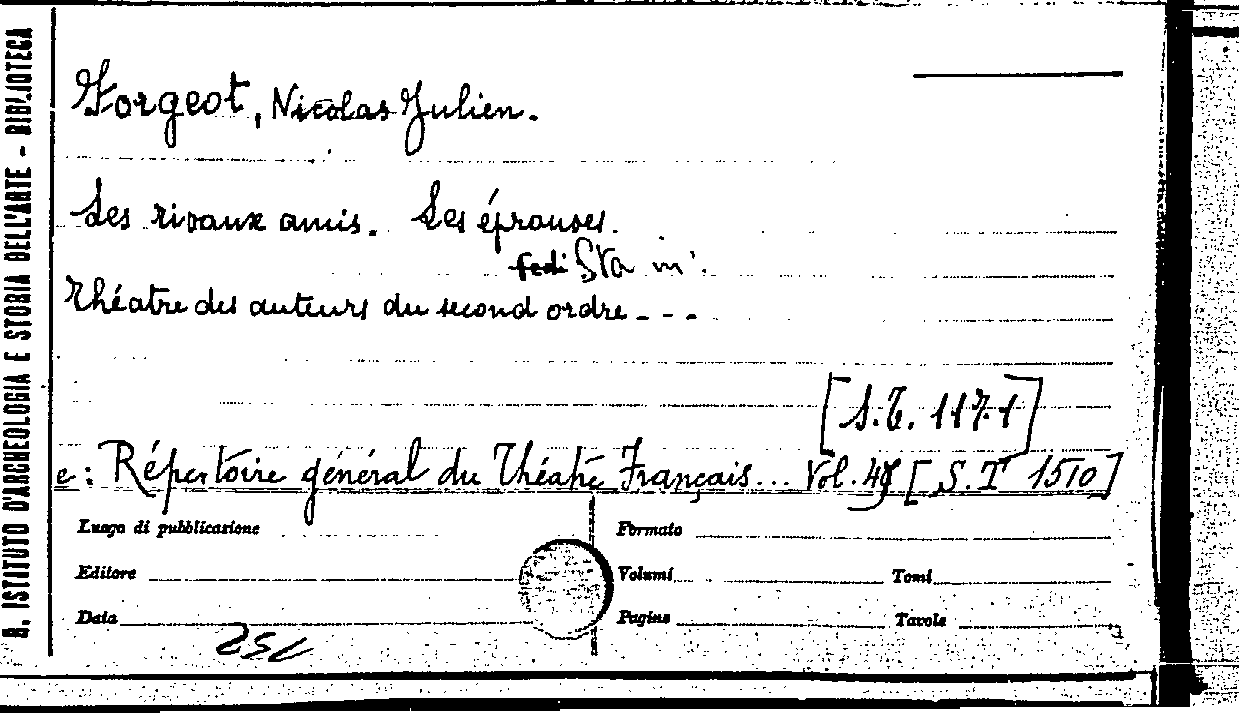 R. ISTITUTO D'ARCHEOLOGIA E STORIA DELL'ARTE - BIBLIOTECA
Forgeot, Nicolas Julien.
Les rivaux amis. Les épreuves.
Sta in:
Théatre des auteurs du second ordre - - -
[S.T. 117.1]
e: Répertoire général du Théatre Français... Vol. [S.T. 1510]
Luogo di pubblicazione
Formato
Editore
Volumi
Tomi
Data
Pagine
Tavole